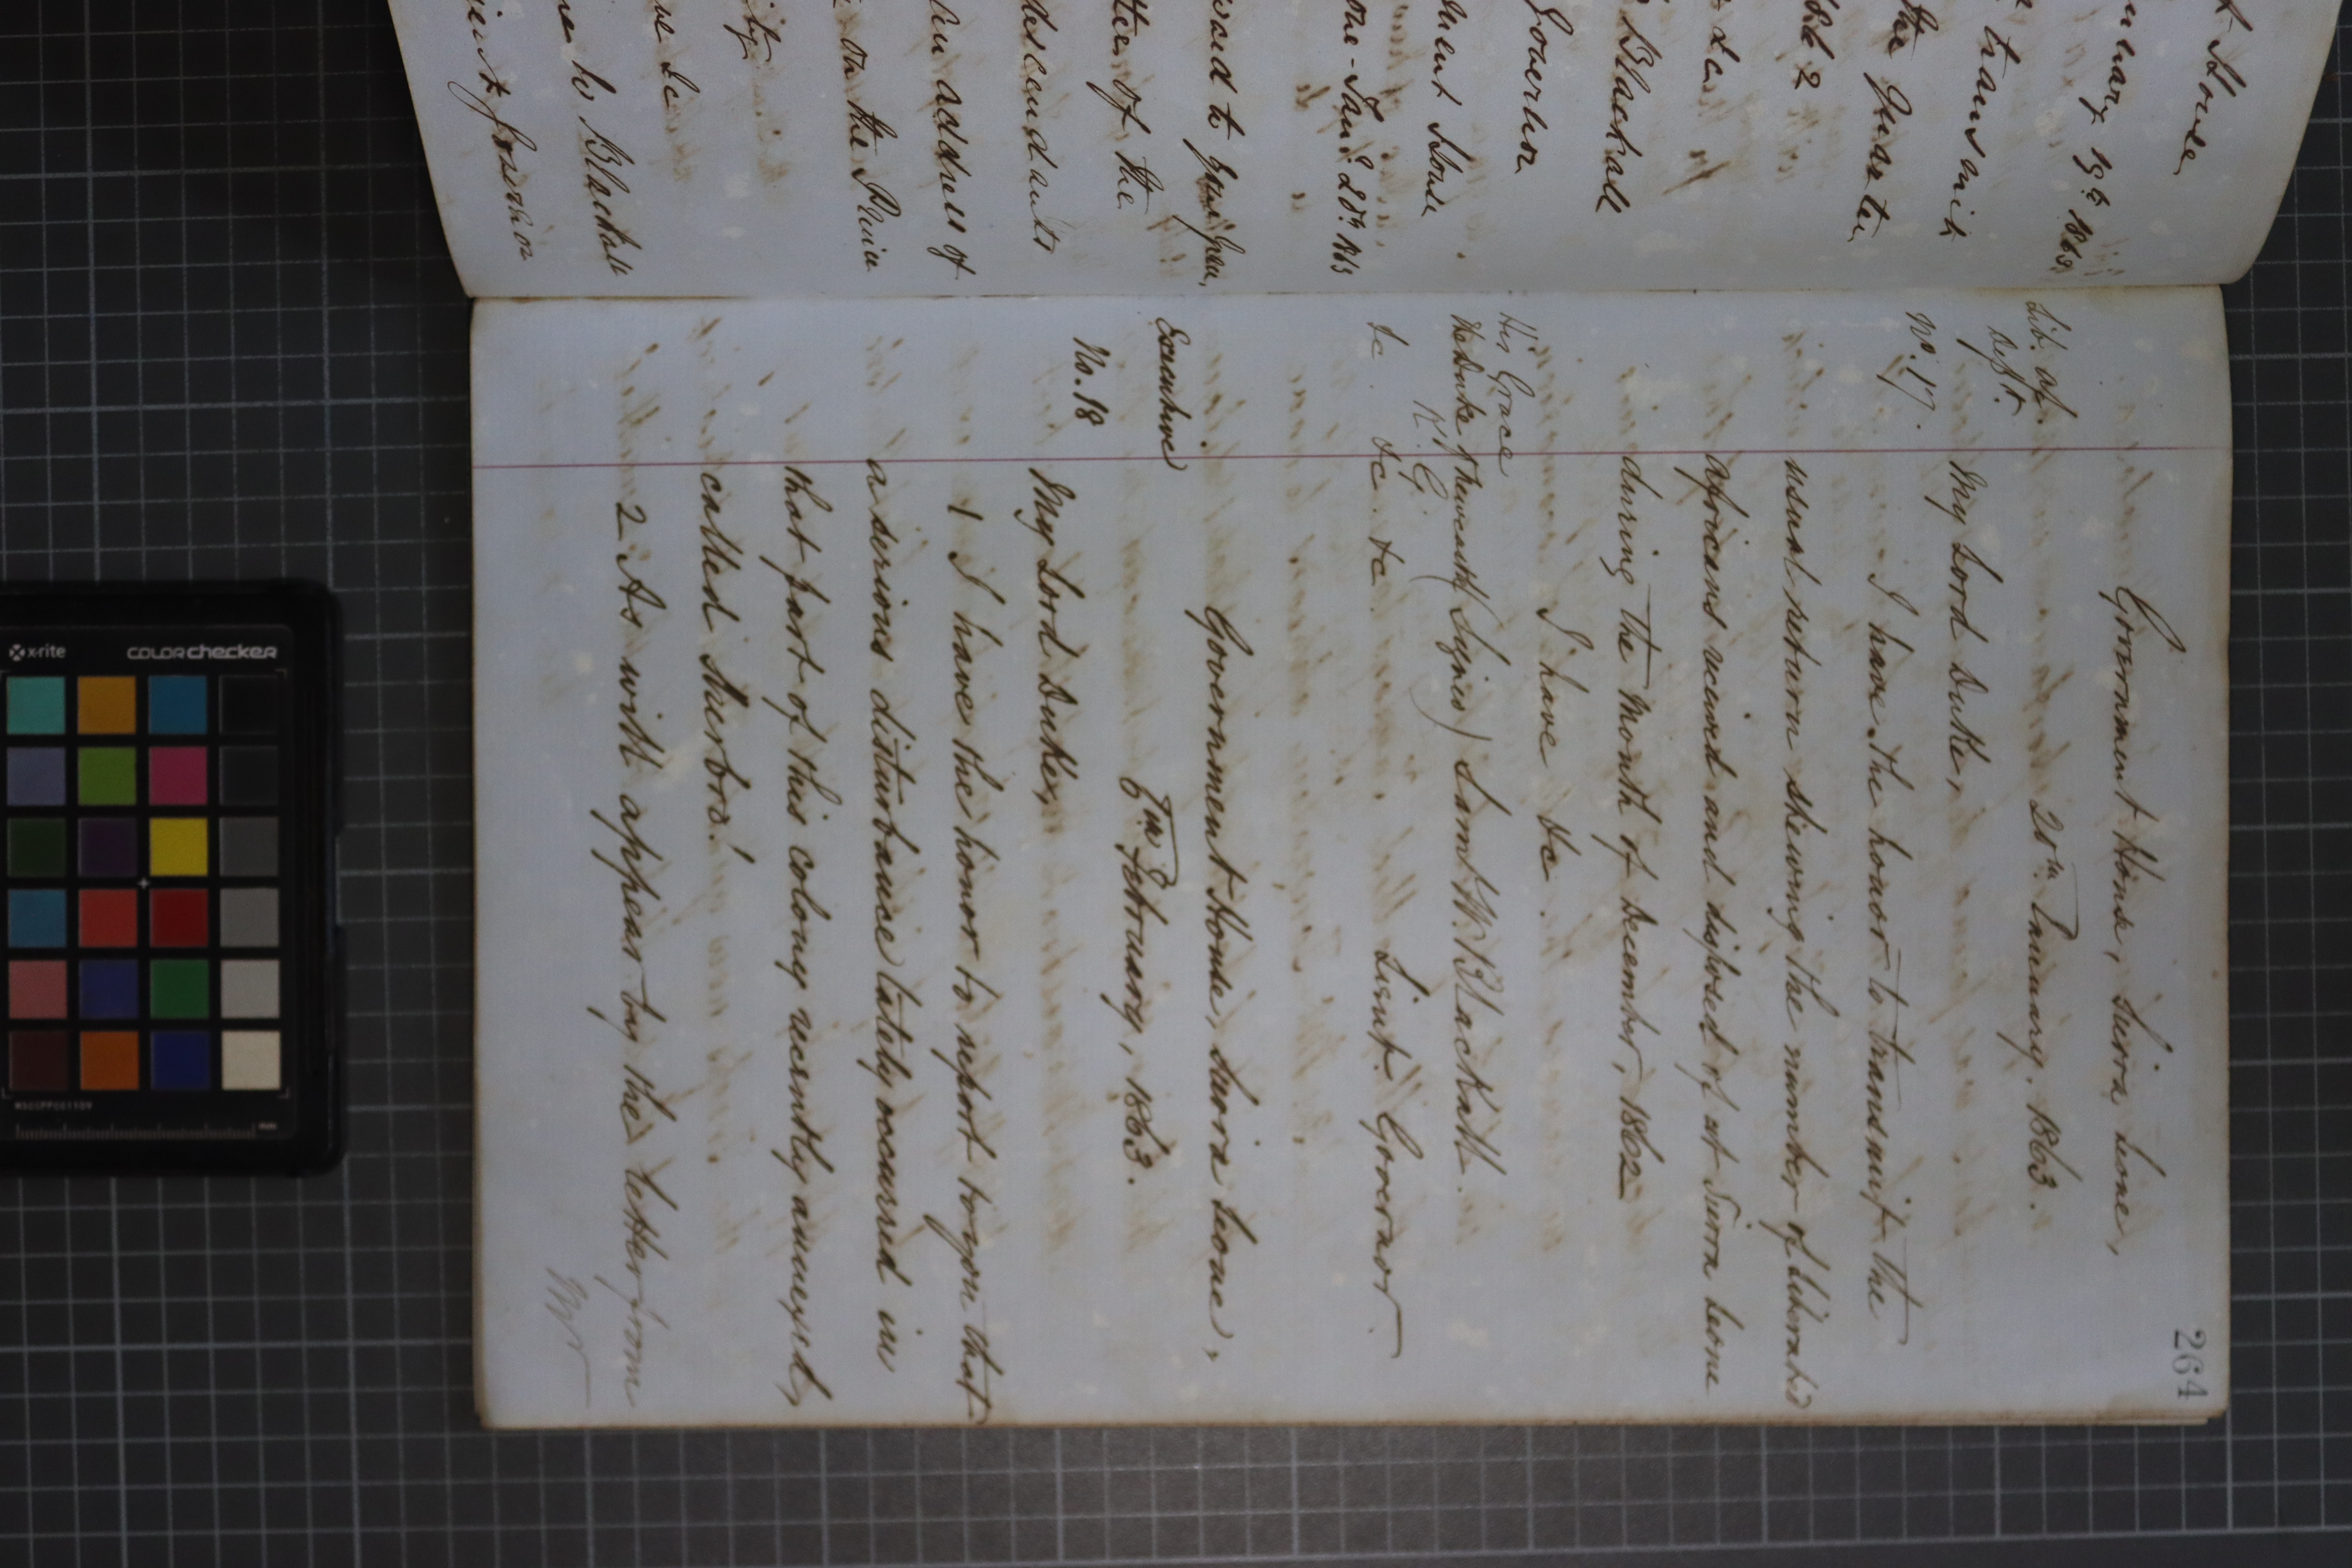 t House
nuary 15th 1863
transmit
the Quarter
2
&c
Blackall
Governor
ment House
one - Jany 20th 1863
ward to your Grace,
tter of the
descendants
an address of
on the Prince
ity
ve &c
ne to Blackall
264
Government House, Sierra Leone,
20th January. 1863.
Lib. Af.
Dept.
No. 17.
My Lord Duke,
I have the honor to transmit the
usual return shewing the number of Liberated
Africans received and disposed of at Sierra Leone
during the month of December, 1862
I have &c.
His Grace
The Duke of Newcastle (Signed) Saml W. Blackall.
K. G.
&c. &c. &c. Lieut. Governor
Government House, Sierra Leone,
6th February, 1863.
Executive
No. 18
My Lord Duke,
1 I have the honor to report to you that
a serious disturbance lately occurred in
that part of this colony recently annexed,
called Sherbro!
2 As will appear by the letter from
x-rite
colorchecker
mm